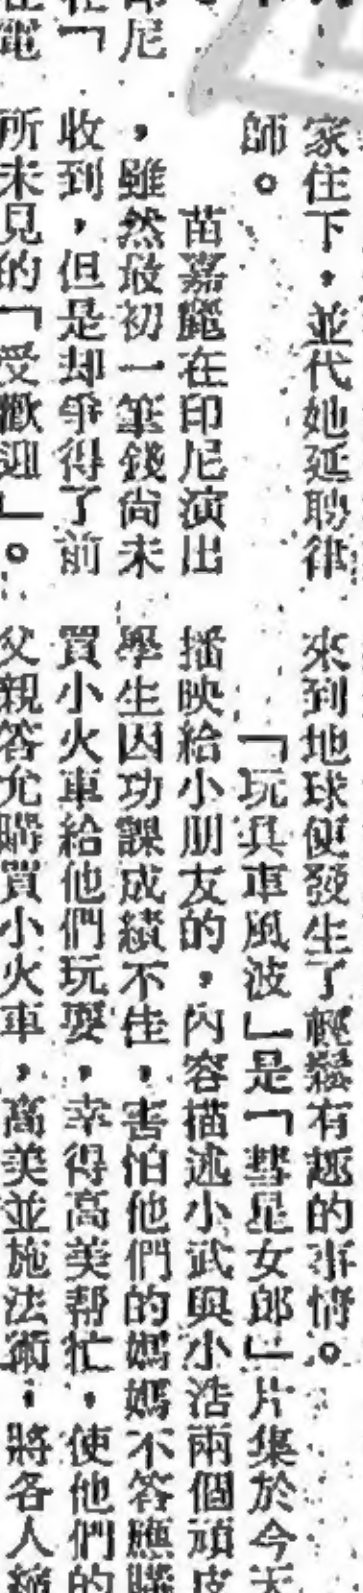 家住下，並代她延聘律
師。
苗嘉麗在印尼演出
，雖然最初一筆錢尚未
收到，但是却爭得了前
所未見的「受歡迎」。
來到地球便發生了輕鬆有趣的事情。
「玩具車風波」是「彗星女郎」片集於今天
播映給小朋友的，內容描述小武與小浩兩個頑皮
學生因功課成績不佳，害怕他們的媽媽不答應購
買小火車給他們玩耍，幸得高美幫忙，使他們的
父親答允購買小火車，高美並施法術，將各人